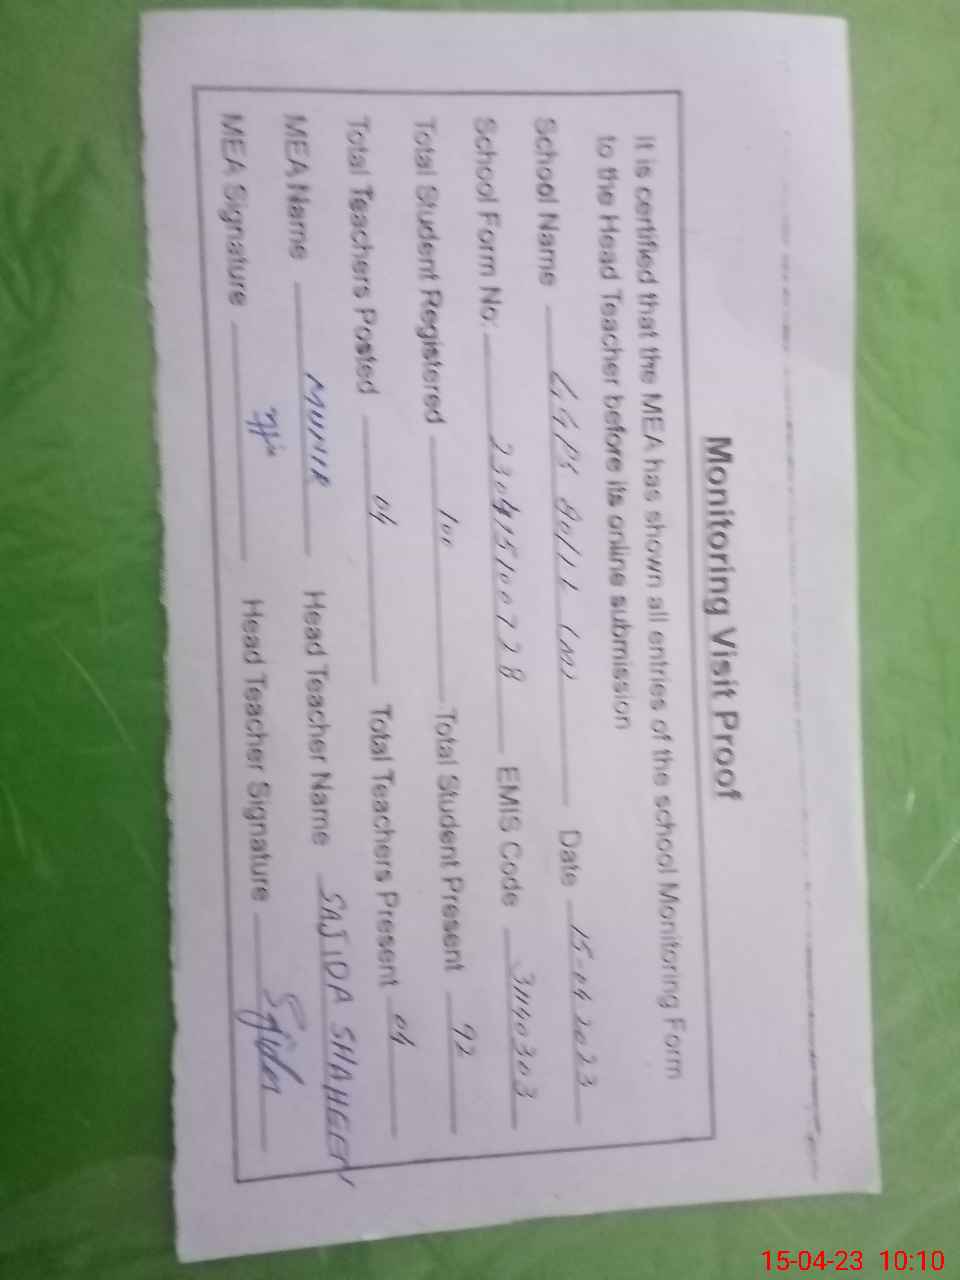 Monitoring Visit Proof
It is certified that the MEA has shown all entries of the school Monitoring Form
to the Head Teacher before its online submission
School Name GGPS 80/1L (M) Date 15-04-2023
School Form No: 2304151007 28 EMIS Code 31140303
Total Student Registered 100 Total Student Present 92
Total Teachers Posted 04 Total Teachers Present 04
MEA Name MUNIR Head Teacher Name SAJIDA SHAHEEN
MEA Signature Head Teacher Signature Sajida
15-04-23 10:10